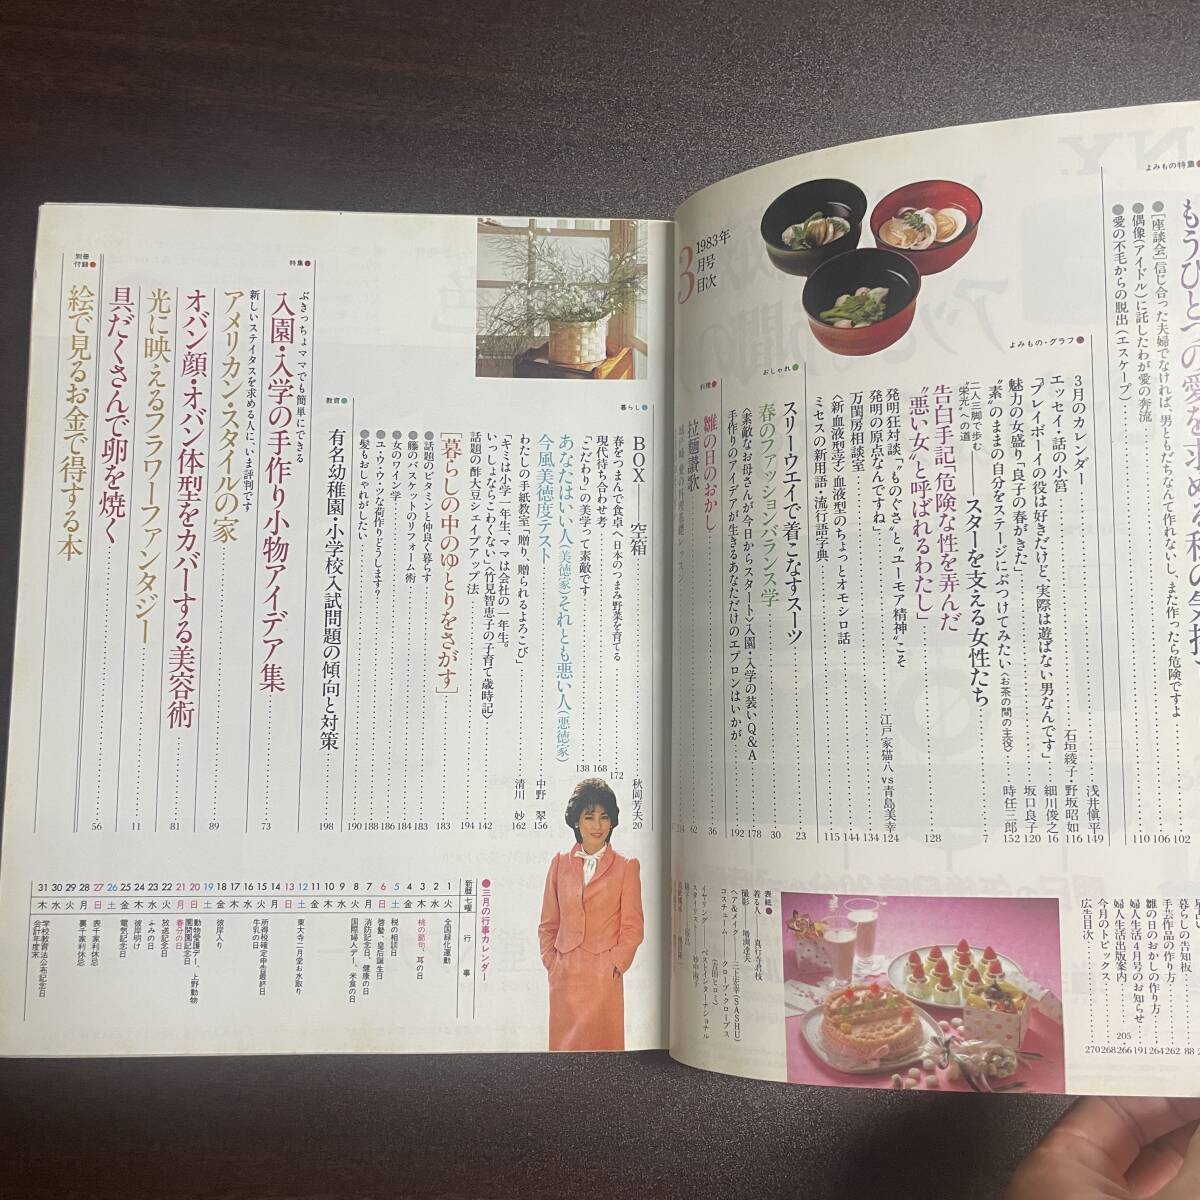 よみもの特集●
もうひとつの愛を求める
●[座談会]信じ合った夫婦でなければ、男ともだちなんて作れないし、また作ったら危険ですよ……102
●偶像(アイドル)に託したわが愛の奔流……106
●愛の不毛からの脱出(エスケープ)……110
よみもの・グラフ●
3月のカレンダー……浅井愼平 149
エッセイ・話の小筥……石垣綾子・野坂昭如 116
「プレイボーイの役は好きだけど、実際は遊ばない男なんです」……細川俊之 16
魅力の女盛り「良子の春がきた」……坂口良子 120
“素”のままの自分をステージにぶつけてみたい〈お茶の間の主役〉……時任三郎 152
二人三脚で歩む“栄光”への道
スターを支える女性たち……7
告白手記「危険な性を弄んだ
“悪い女”と呼ばれるわたし」……128
発明狂対談 “ものぐさ”と“ユーモア精神”こそ
発明の原点なんですね」……江戸家猫八vs青島美幸 124
万国房相談室……144
〈新血液型亭〉血液型のちょっとオモシロ話……114
ミセスの新用語・流行語字典……115
おしゃれ●
スリーウエイで着こなすスーツ……23
春のファッションバランス学……30
〈素敵なお母さんが今日からスタート〉入園・入学の装いQ&A……178
手作りのアイデアが生きるあなただけのエプロンはいかが……192
料理●
雛の日のおかし……36
拉麺讃歌……62
1983年
3月号
目次
暮らし●
BOX——空箱……秋岡芳夫 20
春をつまんで食卓へ〈日本のつまみ野菜を育てる……172
現代待ち合わせ考……168
「こだわり」の美学って素敵です……138
あなたはいい人(美徳家)それとも悪い人(悪徳家)
今風美徳度テスト……中野 翠 156
わたしの手紙教室「贈り、贈られるよろこび」……清川 妙 162
「キミは小学一年生、ママは会社の一年生。
いっしょならこわくない」〈竹見智恵子の子育て歳時記〉……142
話題の酢大豆シェイプアップ法……194
[暮らしの中のゆとりをさがす]……183
●話題のビタミンEと仲良く暮らす……183
●籐のバスケットのリフォーム術……184
●女のワイン学……186
●ユ・ウ・ウ・ツな荷作りどうします?……188
●髪もおしゃれがしたい……190
教育●
有名幼稚園・小学校入試問題の傾向と対策……198
特集●
ぶきっちょママでも簡単にできる
入園・入学の手作り小物アイデア集……73
新しいステイタスを求める人に、いま評判です
アメリカン・スタイルの家……89
オバン顔・オバン体型をカバーする美容術……81
光に映えるフラワーファンタジー……11
具だくさんで卵を焼く……56
別冊付録●
絵で見るお金で得する本
●三月の行事カレンダー
新暦 七曜 行事
1 火 全国緑化運動
2 水
3 木 桃の節句、耳の日
4 金
5 土 税の相談日
6 日 啓蟄、皇后誕生日
7 月 消防記念日、健康の日
8 火 国際婦人デー、米食の日
9 水
10 木
11 金
12 土 東大寺二月堂お水取り
13 日
14 月
15 火 所得税確定申告最終日
16 水 牛乳の日
17 木
18 金 彼岸入り
19 土
20 日 動物愛護デー、上野動物園開園記念日
21 月 春分の日
22 火 放送記念日
23 水 ふみの日
24 木 彼岸明け
25 金 電気記念日
26 土
27 日 表千家利休忌
28 月 裏千家利休忌
29 火
30 水
31 木 学校教育法公布記念日
会計年度末
表紙●
着る人……真行寺君枝
撮影
〈ヘア&メイク〉……三上宏幸(SASHU)
コスチューム……クローブ・クローブス
(吉田ヒロミ)
イヤリング……ベストインターナショナル
スタイリスト
広告目次……270
今月のトピックス……268
婦人生活出版案内……205・266
婦人生活4月号のお知らせ……191
雛の日のおかしの作り方……264
手芸作品の作り方……262
しらせの告知板……88